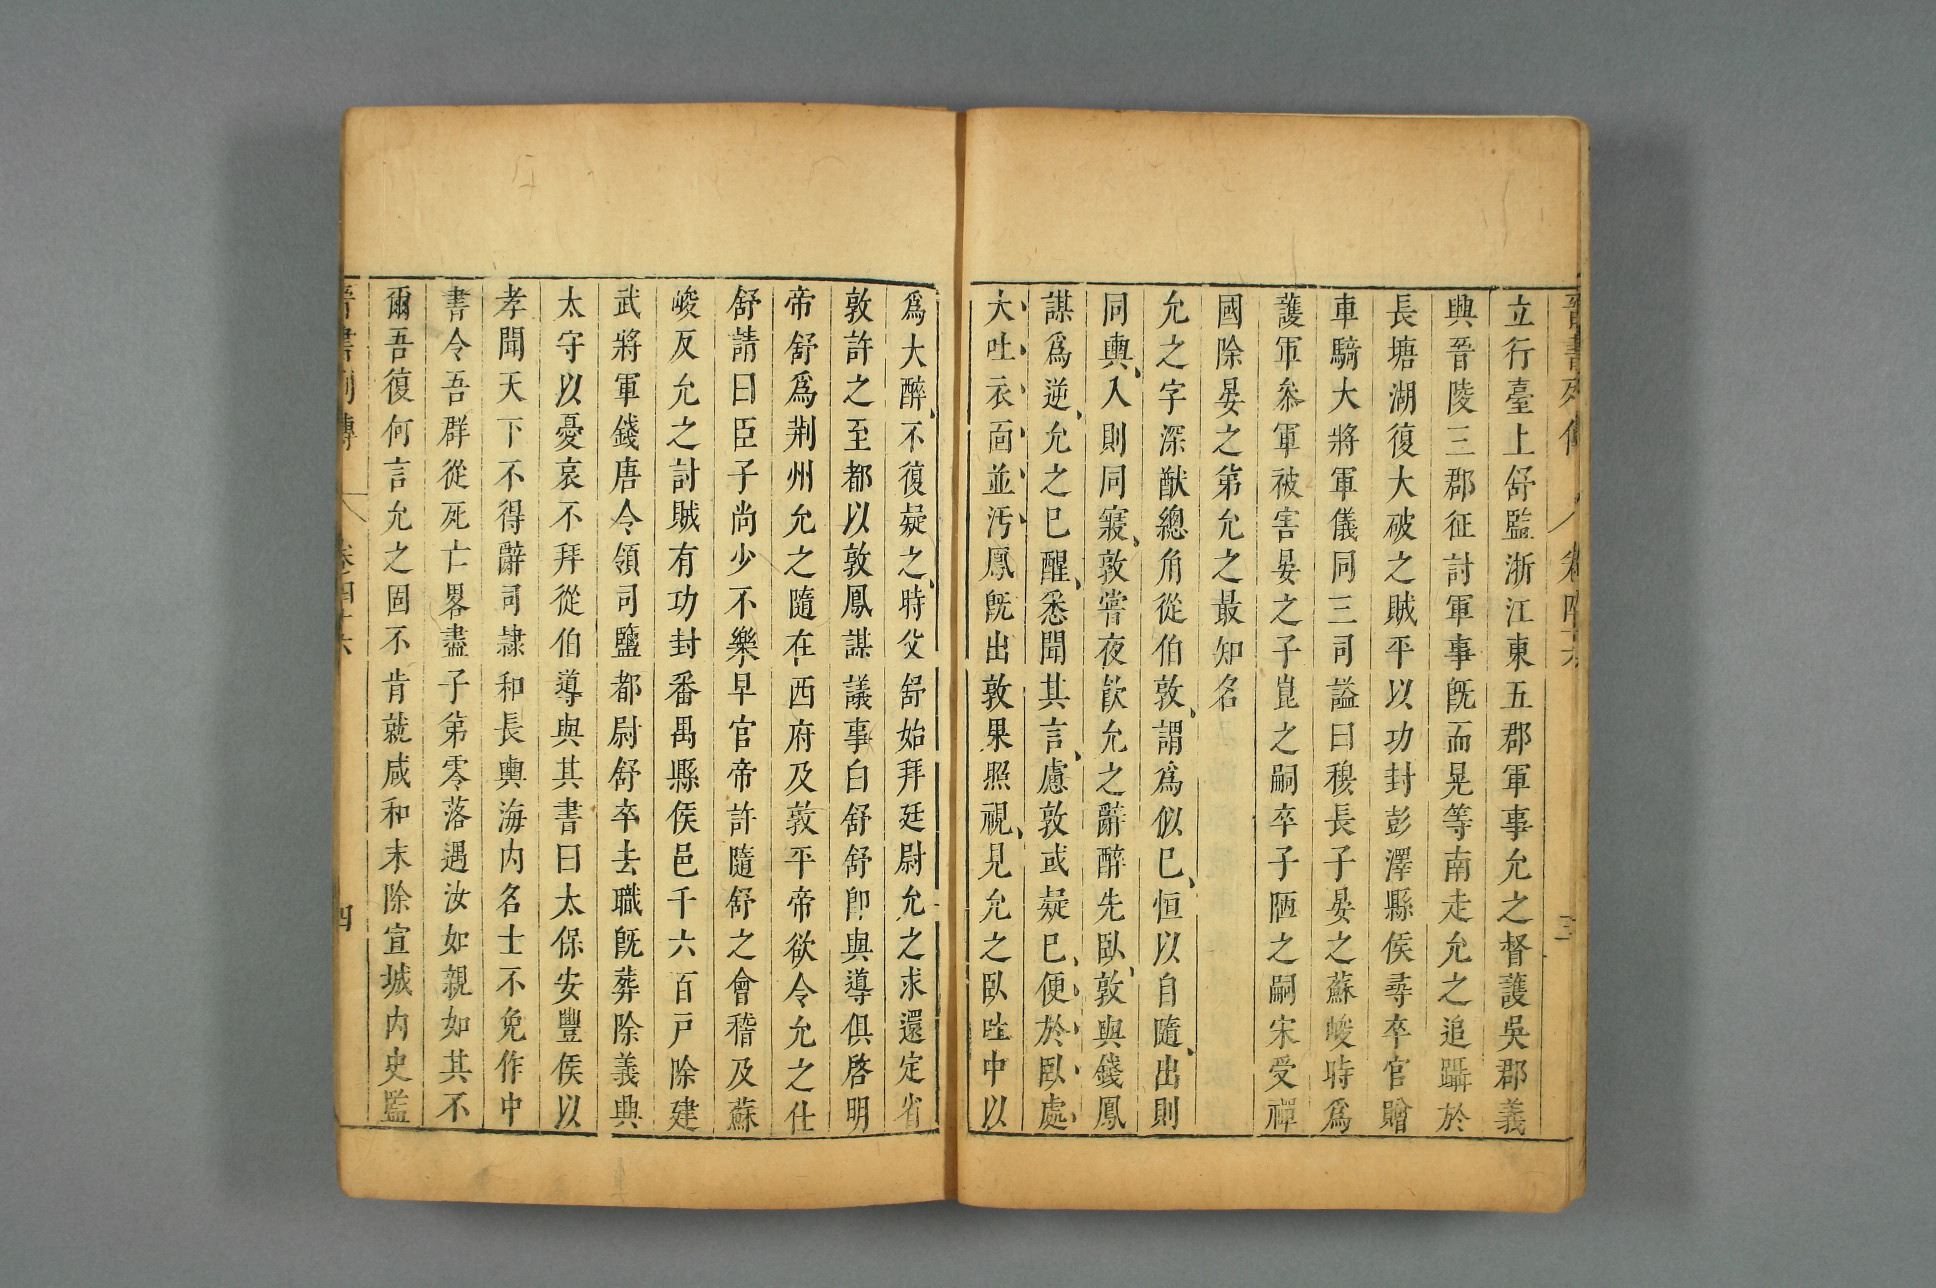 晉書列傳 卷四十六 三
立行臺上舒監浙江東五郡軍事允之督護吳郡義
興晉陵三郡征討軍事旣而晃等南走允之追躡於
長塘湖復大破之賊平以功封彭澤縣侯尋卒官贈
車騎大將軍儀同三司謚曰穆長子晏之蘇峻時爲
護軍叅軍被害晏之子崑之嗣卒子陋之嗣宋受禪
國除晏之第允之最知名
允之字深猷總角從伯敦、謂爲似巳、恒以自隨、出則
同輿、入則同寢、敦嘗夜飲允之辭醉先臥、敦與錢鳳
謀爲逆、允之巳醒、悉聞其言、慮敦或疑巳、便於臥處、
大吐衣面並汚鳳旣出敦果照視、見允之臥吐中以
爲大醉、不復疑之、時父舒始拜廷尉允之求還定省
敦許之至都以敦鳳謀議事白舒舒卽與導俱啓明
帝舒爲荆州允之隨在西府及敦平帝欲令允之仕
舒請曰臣子尚少不樂早官帝許隨舒之會稽及蘇
峻反允之討賊有功封番禺縣侯邑千六百戸除建
武將軍錢唐令領司鹽都尉舒卒去職旣葬除義興
太守以憂哀不拜從伯導與其書曰太保安豐侯以
孝聞天下不得辭司隷和長輿海内名士不免作中
書令吾群從死亡畧盡子弟零落遇汝如親如其不
爾吾復何言允之固不肯就咸和末除宣城内史監
晉書列傳 卷四十六 四